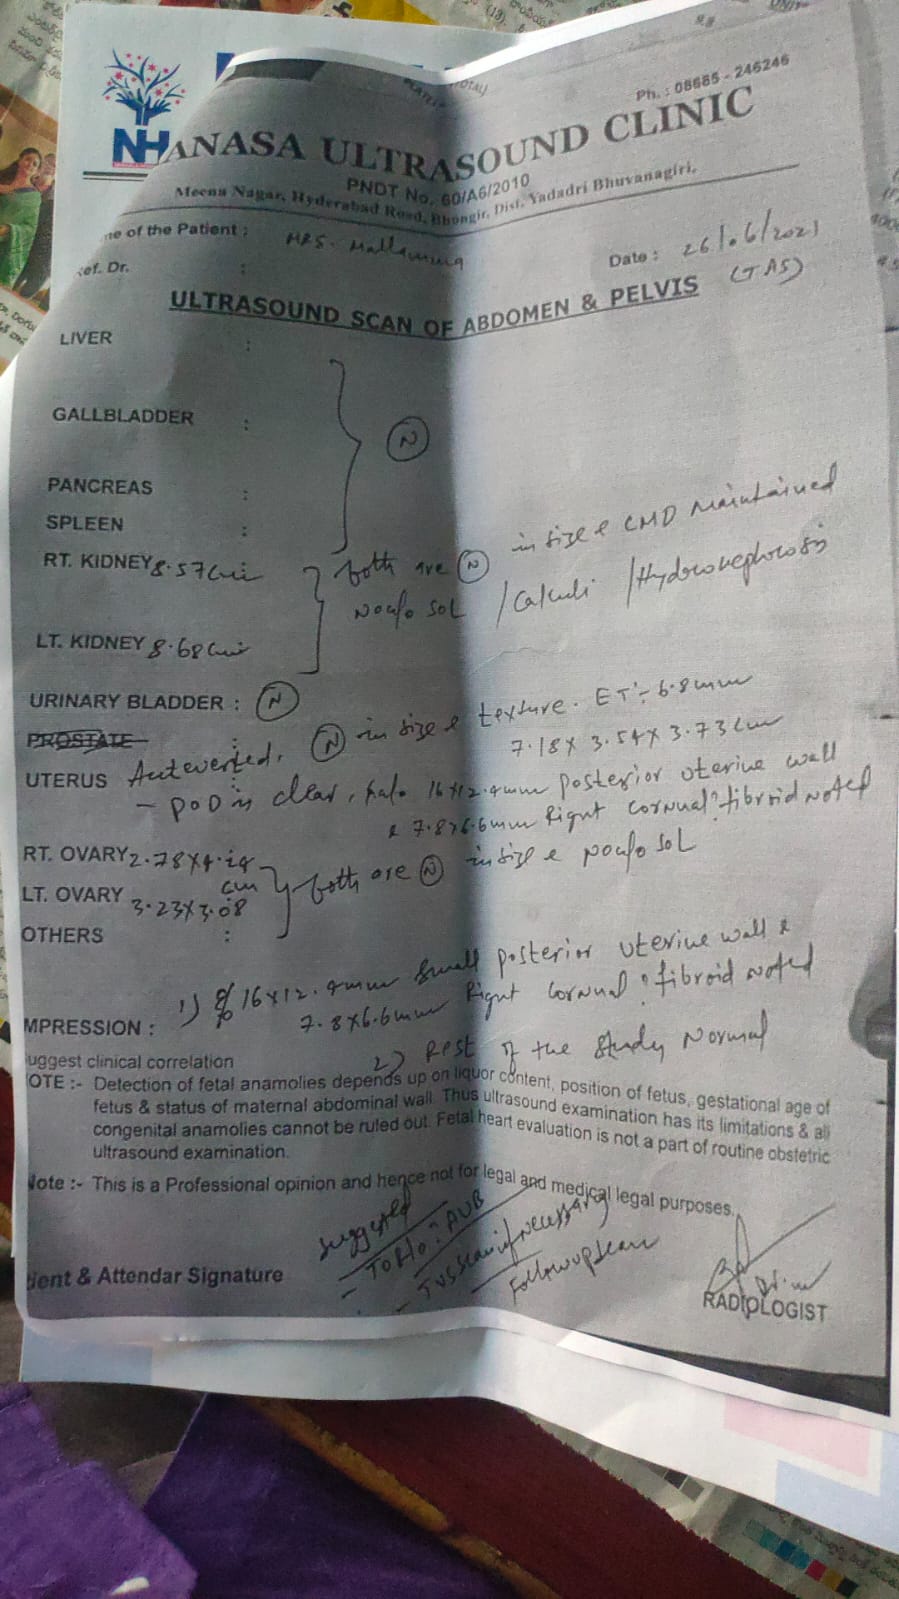 NH
Ph. : 08685 - 246246
ANASA ULTRASOUND CLINIC
PNDT No. 60/A6/2010
Meena Nagar, Hyderabad Road, Bhongir, Dist. Yadadri Bhuvanagiri.
me of the Patient : MRS. Mallamma
Date : 26/06/2021
Ref. Dr. :
ULTRASOUND SCAN OF ABDOMEN & PELVIS (TAS)
LIVER :
GALLBLADDER : N
PANCREAS :
SPLEEN :
RT. KIDNEY 8.57cm both are N in size & CMD Maintained
No e/o SOL / Calculi / Hydronephrosis
LT. KIDNEY 8.68cm
URINARY BLADDER : N
PROSTATE :
UTERUS Anteverted, N in size & texture. ET:- 6.8mm
7.18 x 3.54 x 3.73cm
- POD is clear, e/o 16x12.4mm posterior uterine wall
& 7.8x6.6mm Right cornual ? fibroid noted
RT. OVARY 2.78x4.14 cm both are N in size & no e/o SOL
LT. OVARY 3.23x3.08
OTHERS :
MPRESSION : 1) e/o 16x12.4mm Small posterior uterine wall &
7.8x6.6mm Right cornual ? fibroid noted
2) Rest of the Study Normal
uggest clinical correlation
OTE :- Detection of fetal anamolies depends up on liquor content, position of fetus, gestational age of
fetus & status of maternal abdominal wall. Thus ultrasound examination has its limitations & all
congenital anamolies cannot be ruled out. Fetal heart evaluation is not a part of routine obstetric
ultrasound examination.
Note :- This is a Professional opinion and hence not for legal and medical legal purposes.
Suggested
- To R/o ? AUB
- TVS Scan if necessary
Followup Scan
tient & Attendar Signature
RADIOLOGIST